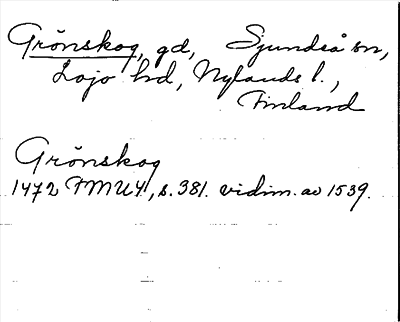 Grönskog, gd, Sjundeå sn,
Lojo hd, Nylands l.,
Finland
Grönskog
1472 FMU4, s. 381. vidim. av 1539.